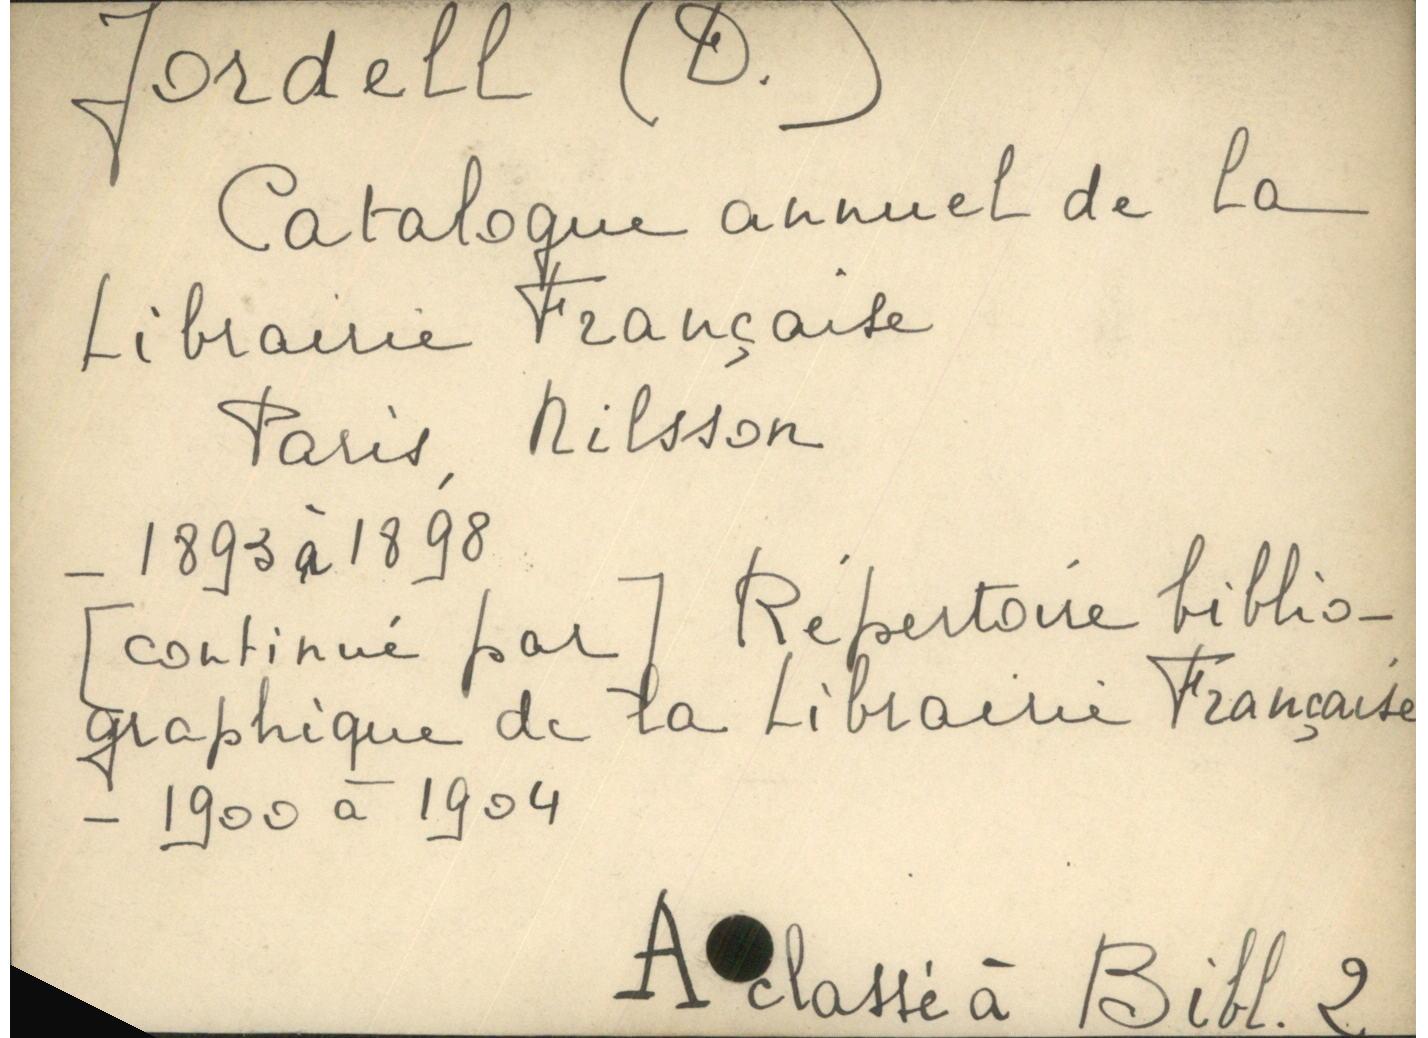 Jordell (D.)
Catalogue annuel de la
Librairie Française
Paris, Nilsson
- 1893 à 1898
[continué par] Répertoire biblio-
graphique de la Librairie Française
- 1900 à 1904
A classé à Bibl. 2